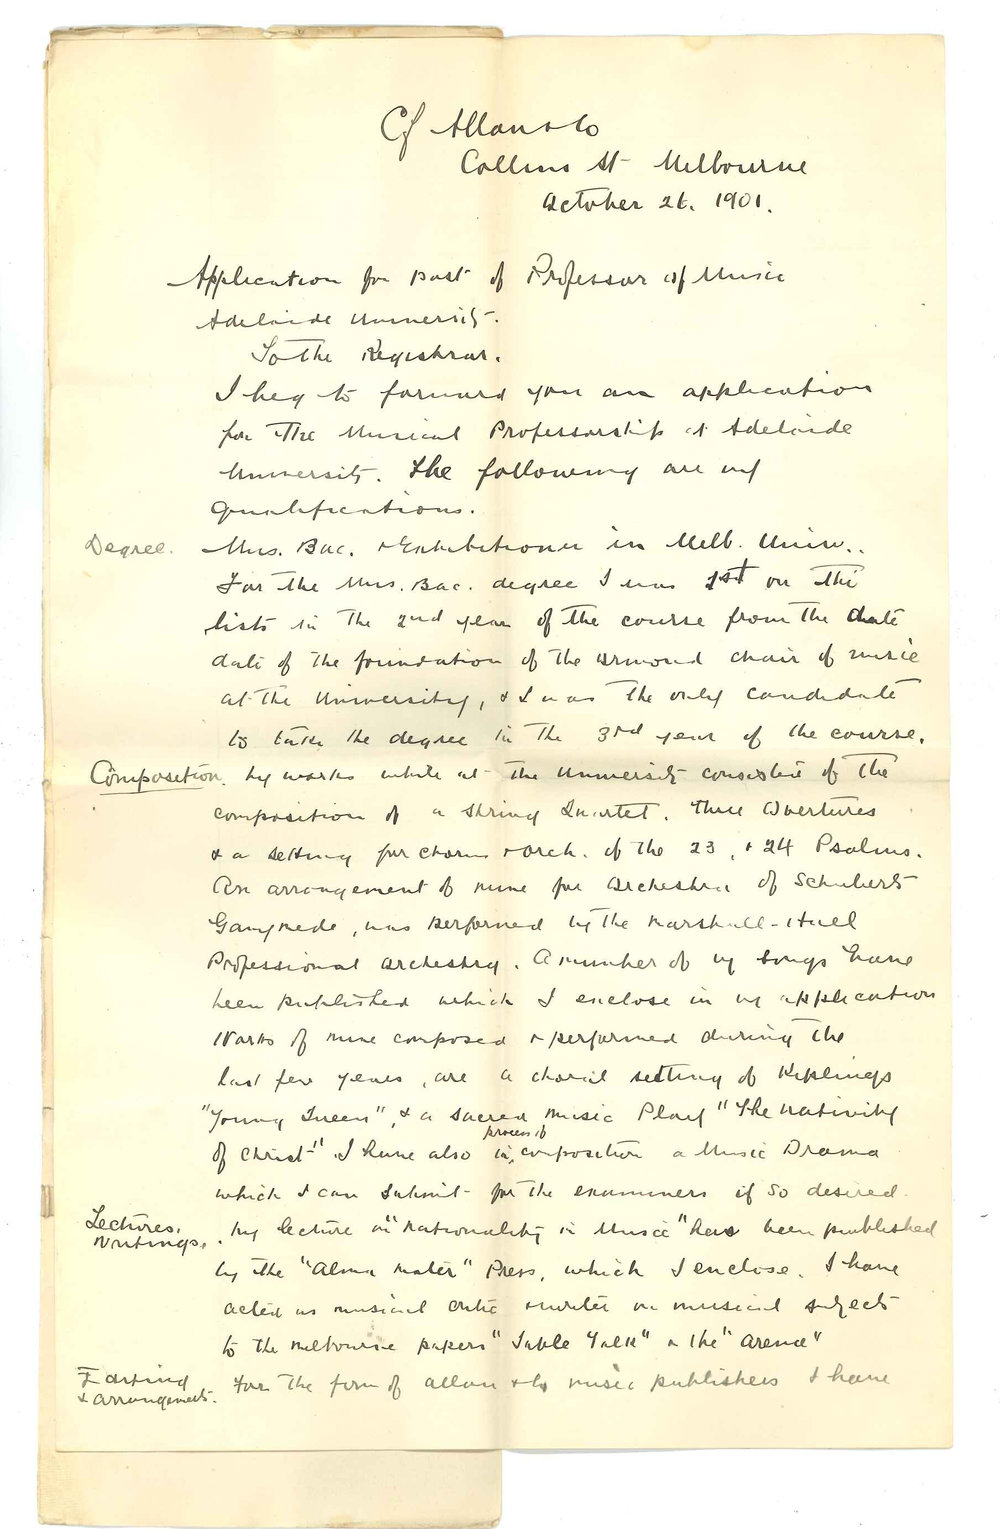 C/ Allan & Co
Collins St Melbourne
October 26. 1901.
Application for post of Professor of Music
Adelaide University.
To the Registrar.
I beg to forward you an application
for the Musical Professorship at Adelaide
University. The following are my
qualifications.
Degree. Mus. Bac. & Exhibitioner in Melb. Univ..
For the Mus. Bac. degree I was 1st on the
lists in the 2nd year of the course from the date
date of the foundation of the Ormond chair of music
at the University, & I was the only candidate
to take the degree in the 3rd year of the course.
Composition. My works while at the University consisted of the
composition of a String Quartet, three Overtures
& a setting for chorus & orch. of the 23, & 24 Psalms.
An arrangement of mine for Orchestra of Schuberts
Ganymede, was performed by the Marshall-Hall
Professional Orchestra. A number of my songs have
been published which I enclose in my application
Works of mine composed & performed during the
last few years, are a choral setting of Kiplings
"Young Queen", & a Sacred Music Play "The Nativity
process of
of Christ" I have also in composition a Music Drama
which I can submit for the examiners if so desired.
Lectures. My lecture on "Nationality in Music" has been published
Writings.
by the "Alma Mater" Press, which I enclose. I have
acted as musical critic & writer on musical subjects
to the Melbourne papers "Table Talk" & the "Arena"
& arrangements. For the firm of Allan & Co music publishers I have